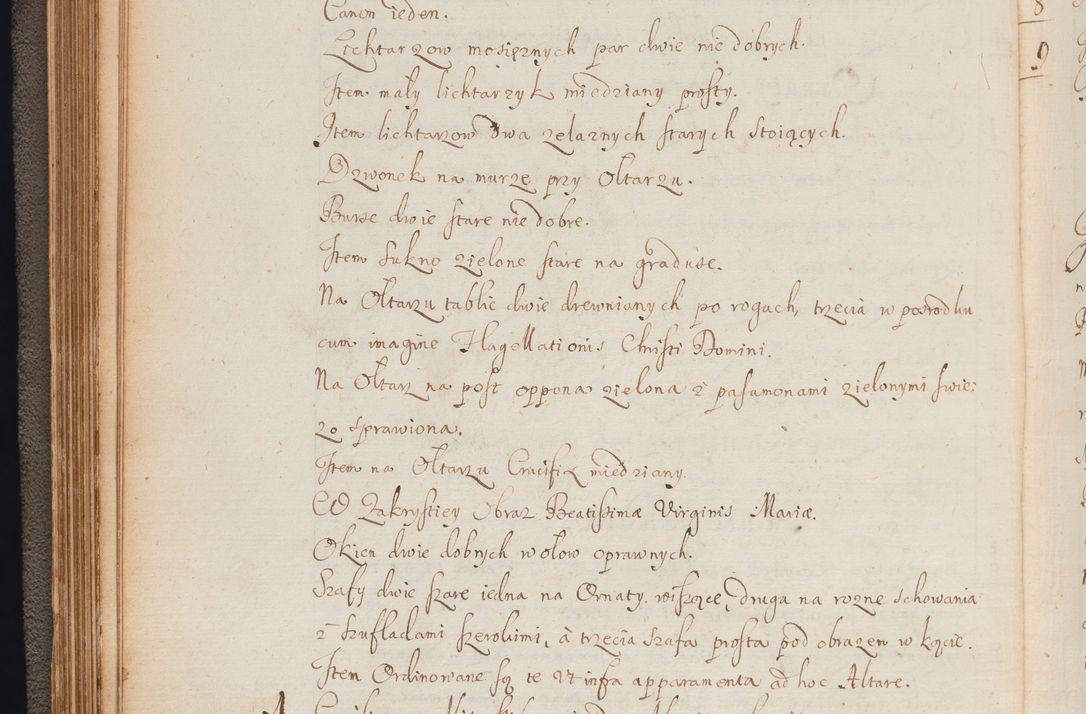 Canon ieden.
Lichtarzow mosiężnych par dwie nie dobrych.
Item mały lichtarzyk miedziany prosty.
Item lichtarzow dwa żelaznych starych stoiących.
Dzwonek na murze przy Ołtarzu.
Burse dwie stare nie dobre.
Item sukno zielone stare na graduse.
Na Ołtarzu tablic dwie drewnianych po rogach, trzecia w posrodku
cum imagine Flagellationis Christi Domini.
Na Ołtarz na post oppona zielona z pasamonami zielonymi swie:
zo sprawiona.
Item na Ołtarzu Crucifix miedziany.
Od Zakrystiey Obraz Beatissimæ Virginis Mariæ.
Okien dwie dobrych w ołow oprawnych.
Szafy dwie szare iedna na Ornaty wiszące, druga na rozne schowania
z szufladami szerokimi, à trzecia szafa prosta pod obrazem w kącie.
Item Ordinowane są te Vt infra apparamenta ad hoc Altare.
8
9